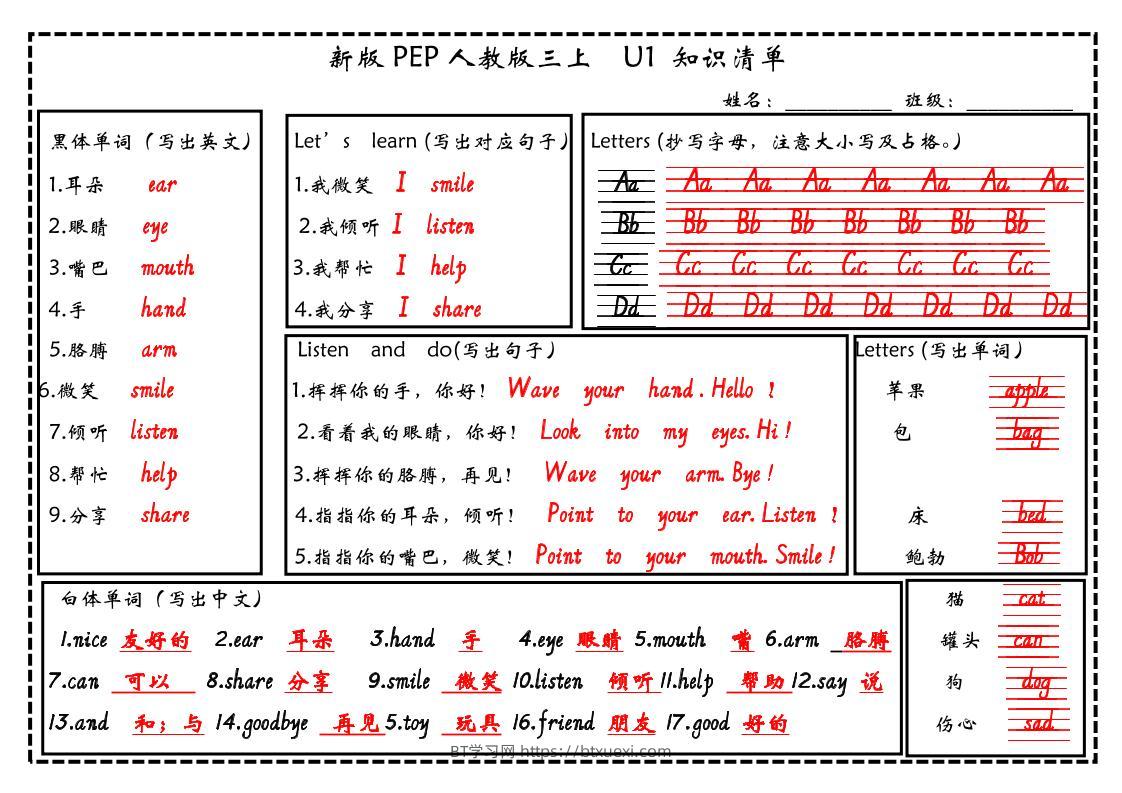 新版 PEP 人教版三上 U1 知识清单
姓名： 班级：
黑体单词（写出英文）
1.耳朵 ear
2.眼睛 eye
3.嘴巴 mouth
4.手 hand
5.胳膊 arm
6.微笑 smile
7.倾听 listen
8.帮忙 help
9.分享 share
Let's learn (写出对应句子)
1.我微笑 I smile
2.我倾听 I listen
3.我帮忙 I help
4.我分享 I share
Letters (抄写字母，注意大小写及占格。)
Aa Aa Aa Aa Aa Aa Aa Aa
Bb Bb Bb Bb Bb Bb Bb Bb
Cc Cc Cc Cc Cc Cc Cc Cc
Dd Dd Dd Dd Dd Dd Dd Dd
Listen and do(写出句子)
1.挥挥你的手，你好！ Wave your hand. Hello !
2.看着我的眼睛，你好！ Look into my eyes. Hi !
3.挥挥你的胳膊，再见！ Wave your arm. Bye !
4.指指你的耳朵，倾听！ Point to your ear. Listen !
5.指指你的嘴巴，微笑！ Point to your mouth. Smile !
Letters (写出单词)
苹果 apple
包 bag
床 bed
鲍勃 Bob
猫 cat
罐头 can
狗 dog
伤心 sad
白体单词（写出中文）
1.nice 友好的 2.ear 耳朵 3.hand 手 4.eye 眼睛 5.mouth 嘴 6.arm 胳膊
7.can 可以 8.share 分享 9.smile 微笑 10.listen 倾听 11.help 帮助 12.say 说
13.and 和；与 14.goodbye 再见 5.toy 玩具 16.friend 朋友 17.good 好的
BT学习网 https://btxuexi.com